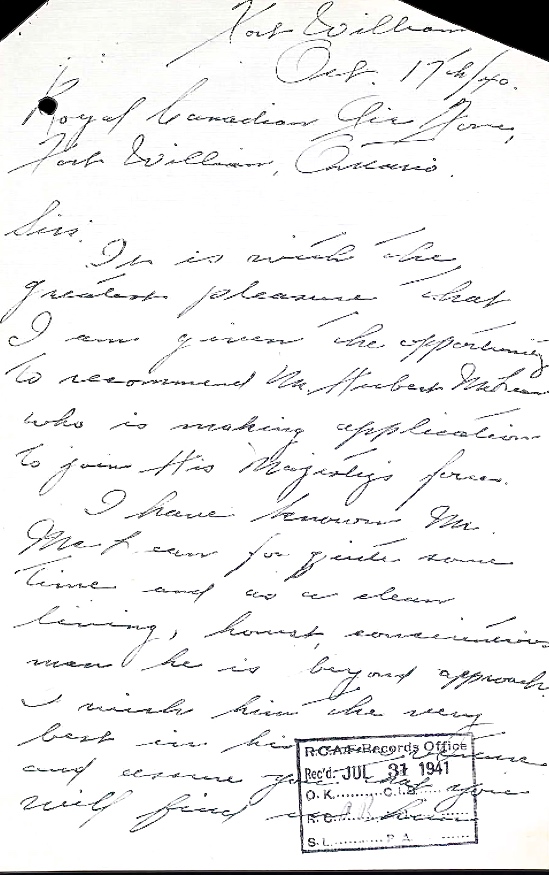 Fort William
Oct. 17th/40.
Royal Canadian Air Force,
Fort William, Ontario.
Sir:
It is with the
greatest pleasure that
I am given the opportunity
to recommend Mr. Herbert McLean
who is making application
to join His Majesty's forces.
I have known Mr.
McLean for quite some
time and as a clean
living, honest, conscientious
man he is beyond approach.
I wish him the very
best in his
and assure you that you
will find in him
R.C.A.F. Records Office
Rec'd. JUL 31 1941
O.K. C.I.B.
R.C.
S.I. P.A.